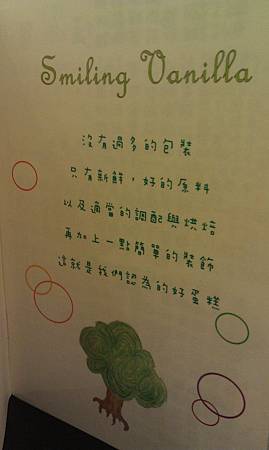 Smiling Vanilla
沒有過多的包裝
只有新鮮，好的原料
以及適當的調配與烘焙
再加上一點簡單的裝飾
這就是我們認為的好蛋糕